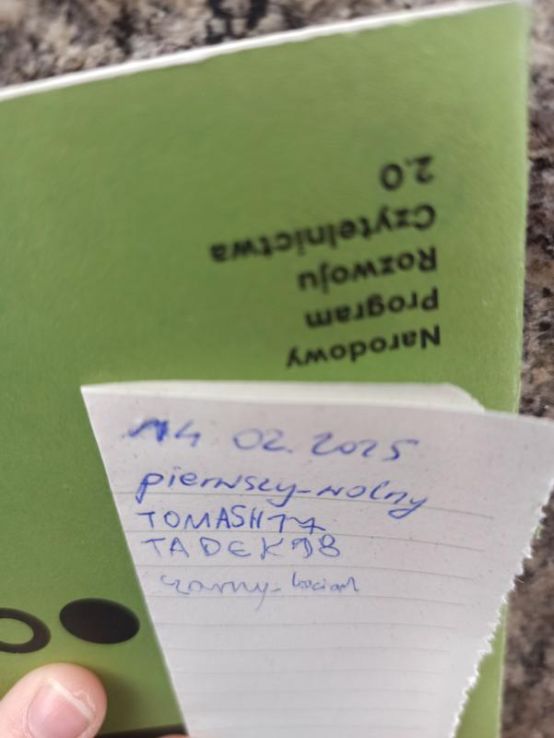 Narodowy
Program
Rozwoju
Czytelnictwa
2.0
14 02.2025
pierwszy-wolny
TOMASH77
TADEK98
czarny-kocian